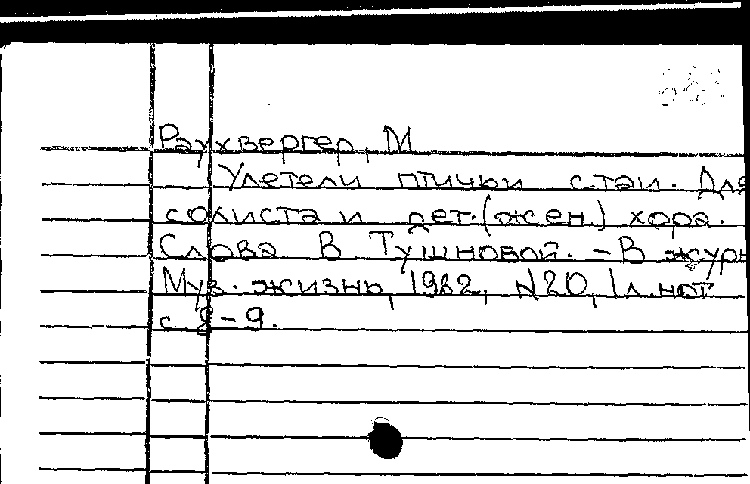 Раухвергер, М
Улетели птички стаи. Для
солиста и дет.(жен.) хора.
Слова В Тушновой. - В журн
Муз. жизнь, 1982, N20, 1л.нот
с 8-9.